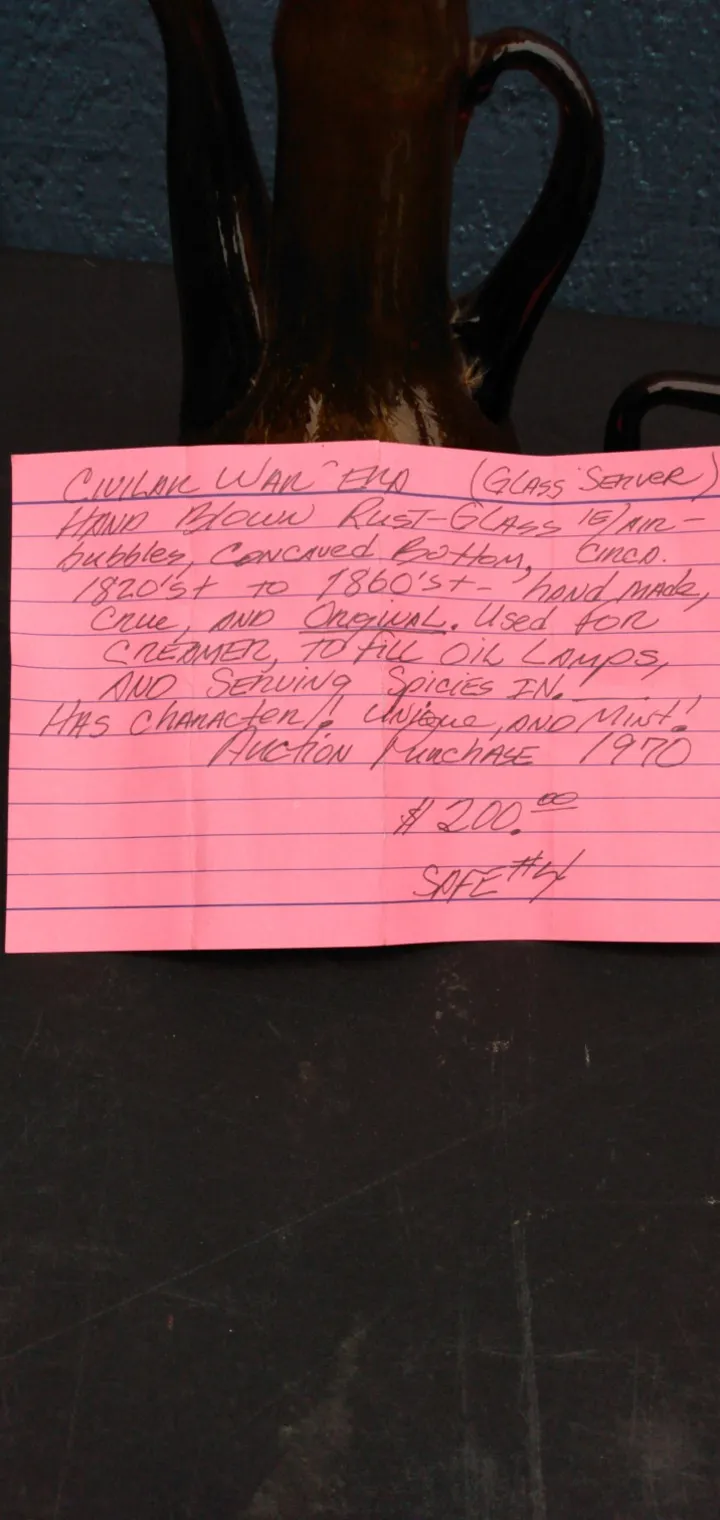 CIVILAR WAR ERA (GLASS SERVER)
HAND BLOWN RUST-GLASS IE/AIR-
bubbles, CONCAVED BOTTOM, CIRCA.
1820's+ to 1860's+- hand made,
CRUE, AND ORIGINAL. Used FOR
CREAMER, TO FILL OIL LAMPS,
AND SERVING SPICIES IN.
HAS CHARACTER!. UNIQUE, AND MINT!
AUCTION PURCHASE 1970
$200.00
SAFE #4